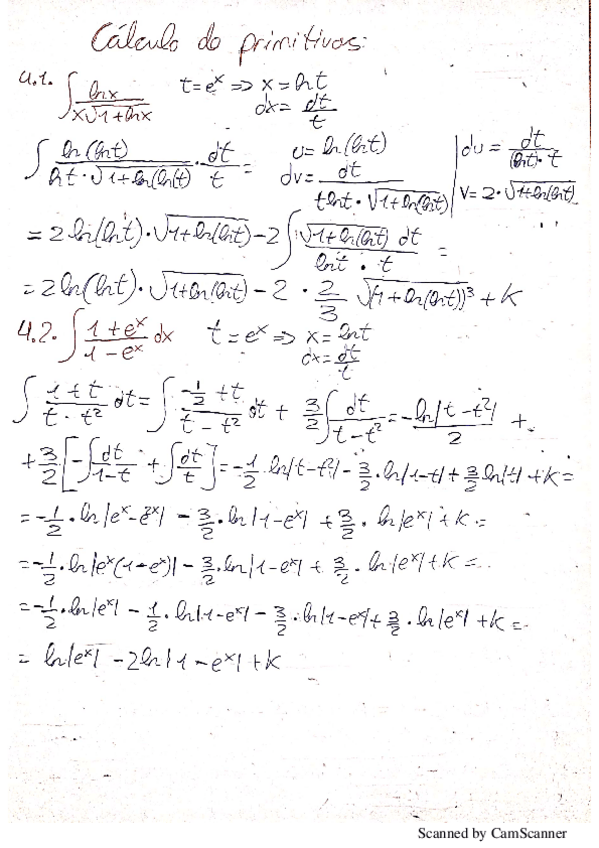 Cálculo de primitivas:
4.1. ∫ lnx / x√1+lnx t=eˣ => x=lnt
dx= dt/t
∫ ln(lnt) / lnt·√1+ln(lnt) · dt/t = u=ln(lnt) du= dt/(lnt)·t
dv= dt / tlnt·√1+ln(lnt) v=2·√1+ln(lnt)
=2ln(lnt)·√1+ln(lnt) -2∫ √1+ln(lnt) dt / lnt · t =
=2ln(lnt)·√1+ln(lnt) -2 · 2/3 √(1+ln(lnt))³ +k
4.2. ∫ 1+eˣ / 1-eˣ dx t=eˣ => x=lnt
dx= dt/t
∫ 1+t / t-t² dt= ∫ -1/2 +t / t-t² dt + 3/2 ∫ dt / t-t² = -ln|t-t²| / 2 +
+ 3/2 [-∫ dt/1-t + ∫ dt/t] = -1/2 ln|t-t²| - 3/2 · ln|1-t| + 3/2 ln|t| +k=
=-1/2 · ln|eˣ-e²ˣ| - 3/2 · ln|1-eˣ| + 3/2 · ln|eˣ| +k=
=-1/2 · ln|eˣ(1-eˣ)| - 3/2 · ln|1-eˣ| + 3/2 · ln|eˣ| +k=
=-1/2 · ln|eˣ| - 1/2 · ln|1-eˣ| - 3/2 · ln|1-eˣ| + 3/2 · ln|eˣ| +k=
= ln|eˣ| -2ln|1-eˣ| +k
Scanned by CamScanner